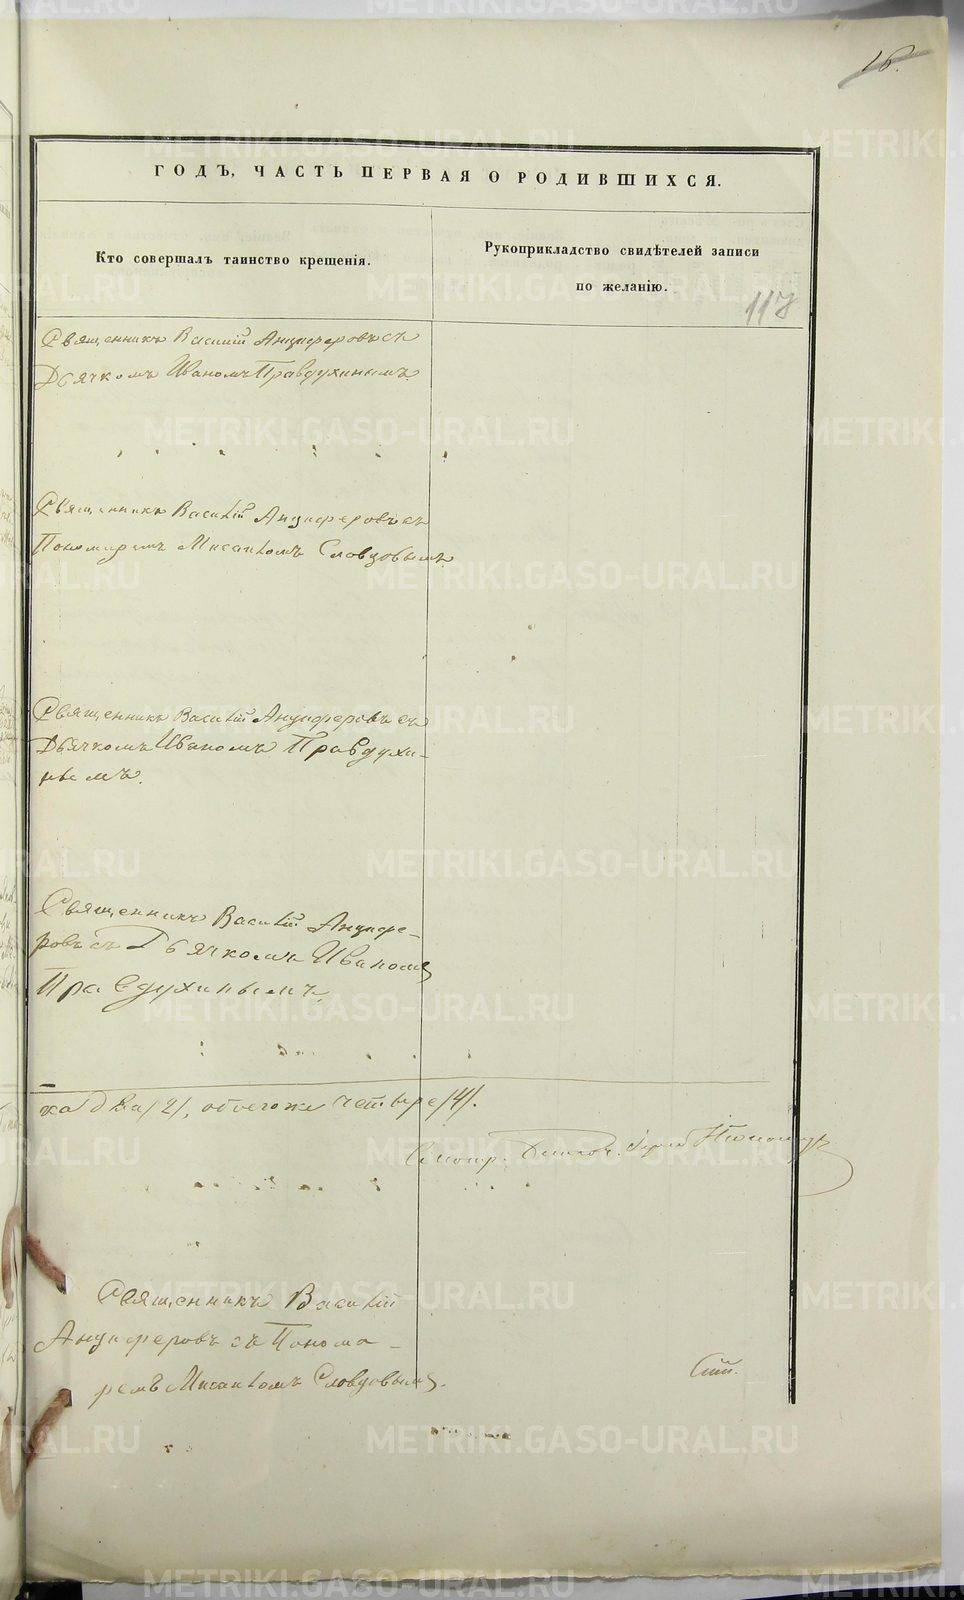 16.
ГОДЪ, ЧАСТЬ ПЕРВАЯ О РОДИВШИХСЯ.
Кто совершалъ таинство крещенія.
Рукоприкладство свидѣтелей записи
по желанію.
117
Священникъ Василій Анциферовъ съ
Дьячкомъ Иваномъ Правдухинымъ.
Священникъ Василій Анциферовъ съ
Пономаремъ Мисаиломъ Словцовымъ.
Священникъ Василій Анциферовъ съ
Дьячкомъ Иваномъ Правдухи-
нымъ.
Священникъ Василій Анцифе-
ровъ съ Дьячкомъ Иваномъ
Правдухинымъ.
ка два /2/, обоегоже четвере /4/.
Священникъ Василій
Анциферовъ съ Понома-
ремъ Мисаиломъ Словцовымъ.
METRIKI.GASO-URAL.RU